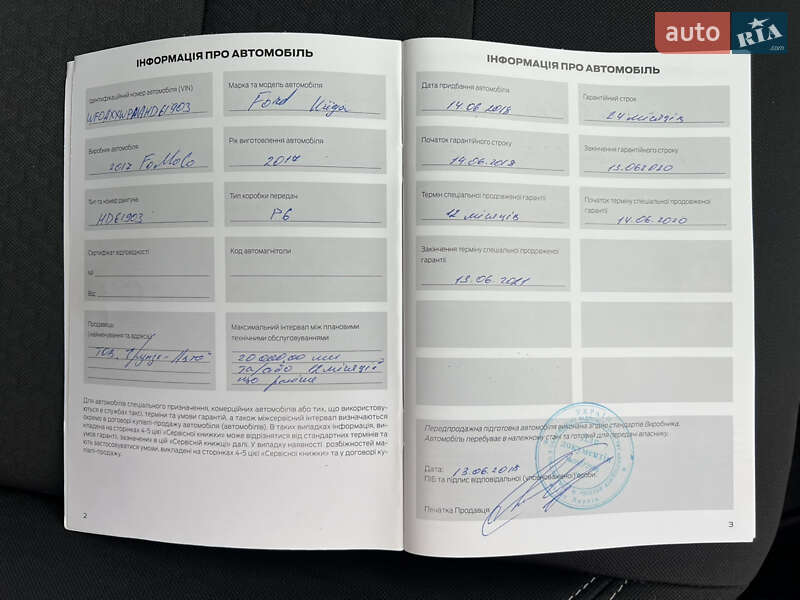 auto RIA.com
ІНФОРМАЦІЯ ПРО АВТОМОБІЛЬ
Ідентифікаційний номер автомобіля (VIN)
Марка та модель автомобіля
Ford Kuga
Виробник автомобіля
2017 FoMoCo
Рік виготовлення автомобіля
2017
Тип та номер двигуна
HD61903
Тип коробки передач
P6
Сертифікат відповідності
№
Від
Код автомагнітоли
Продавець
(найменування та адреса)
ТОВ "Фрунзе-Авто"
Максимальний інтервал між плановими
технічними обслуговуваннями
20 000,00 км
та/або 12 місяців
що раніше
Для автомобілів спеціального призначення, комерційних автомобілів або тих, що використову-
ються в службах таксі, терміни та умови гарантій, а також міжсервісний інтервал визначаються
окремо в договорі купівлі-продажу автомобіля (автомобілів). В таких випадках інформація, ви-
кладена на сторінках 4-5 цієї «Сервісної книжки» може відрізнятися від стандартних термінів та
умов гарантії, зазначених в цій «Сервісній книжці» далі. У випадку наявності розбіжностей ма-
ють застосовуватися умови, викладені на сторінках 4-5 цієї «Сервісної книжки» та у договорі ку-
півлі-продажу.
2
ІНФОРМАЦІЯ ПРО АВТОМОБІЛЬ
Дата придбання автомобіля
14.06.2018
Гарантійний строк
24 місяців
Початок гарантійного строку
14.06.2018
Закінчення гарантійного строку
13.06.2020
Термін спеціальної продовженої гарантії
12 місяців
Початок терміну спеціальної продовженої
гарантії
14.06.2020
Закінчення терміну спеціальної продовженої
гарантії
13.06.2021
Передпродажна підготовка автомобіля виконана згідно стандартів Виробника.
Автомобіль перебуває в належному стані та готовий для передачі власнику.
Дата: 13.06.2018
ПІБ та підпис відповідальної (уповноваженої) особи:
Печатка Продавця
УКРАЇНА
3